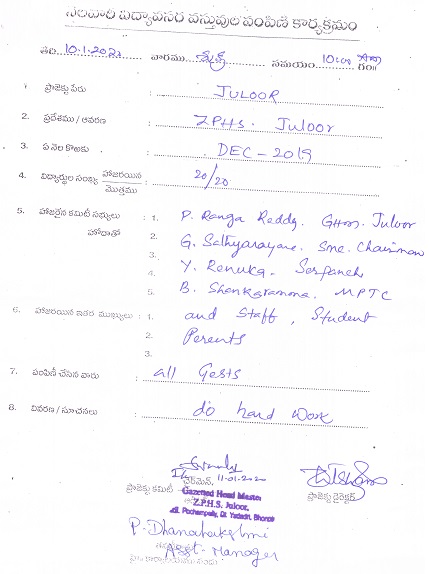 నెలవారి విద్యావసర వస్తువుల పంపిణి కార్యక్రమం
తేది 10.1.2020 వారము సమయం 10:00 గం॥
1. ప్రాజెక్టు పేరు : JULOOR
2. ప్రదేశము / ఆవరణ : ZPHS. Juloor
3. ఏ నెల కొఱకు : DEC - 2019
4. విద్యార్థుల సంఖ్య హాజరయిన / మొత్తము : 20/20
5. హాజరైన కమిటీ సభ్యులు : 1. P. Ranga Reddy. GHM. Juloor
హోదాతో 2. G. Sathyarayane. SMC. Chairman
3. Y. Renuka. Serpanch
4. B. Shenkaramma. MPTC
5.
6. హాజరయిన ఇతర ముఖ్యులు : 1. and Staff, Student
2. Perents
3.
7. పంపిణీ చేసిన వారు : all Gests
8. వివరణ / సూచనలు : do hard work
11-01-2020
ప్రాజెక్టు కమిటీ చైర్మెన్,
ప్రాజెక్టు డైరెక్టర్
Gazetted Head Master
Z.P.H.S. Juloor,
Pochampally, Dt. Yadadri, Bhongir
P. Dhanalakshmi
Asst. Manager